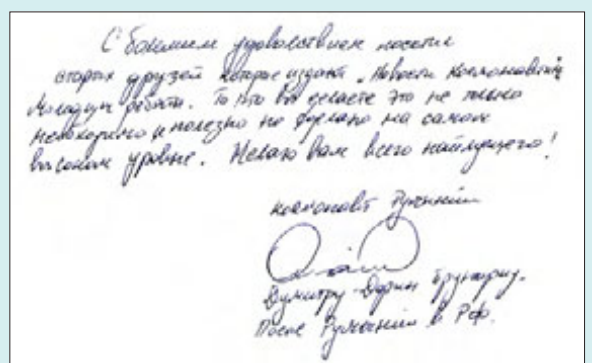 С большим удовольствием посетил
старых друзей которые издают „Новости Космонавтики"
Молодцы ребята. То что вы делаете это не только
необходимо и полезно но сделано на самом
высоком уровне. Желаю Вам всего наилучшего!
космонавт Румынии
Думитру-Дорин Прунариу.
Посол Румынии в РФ.